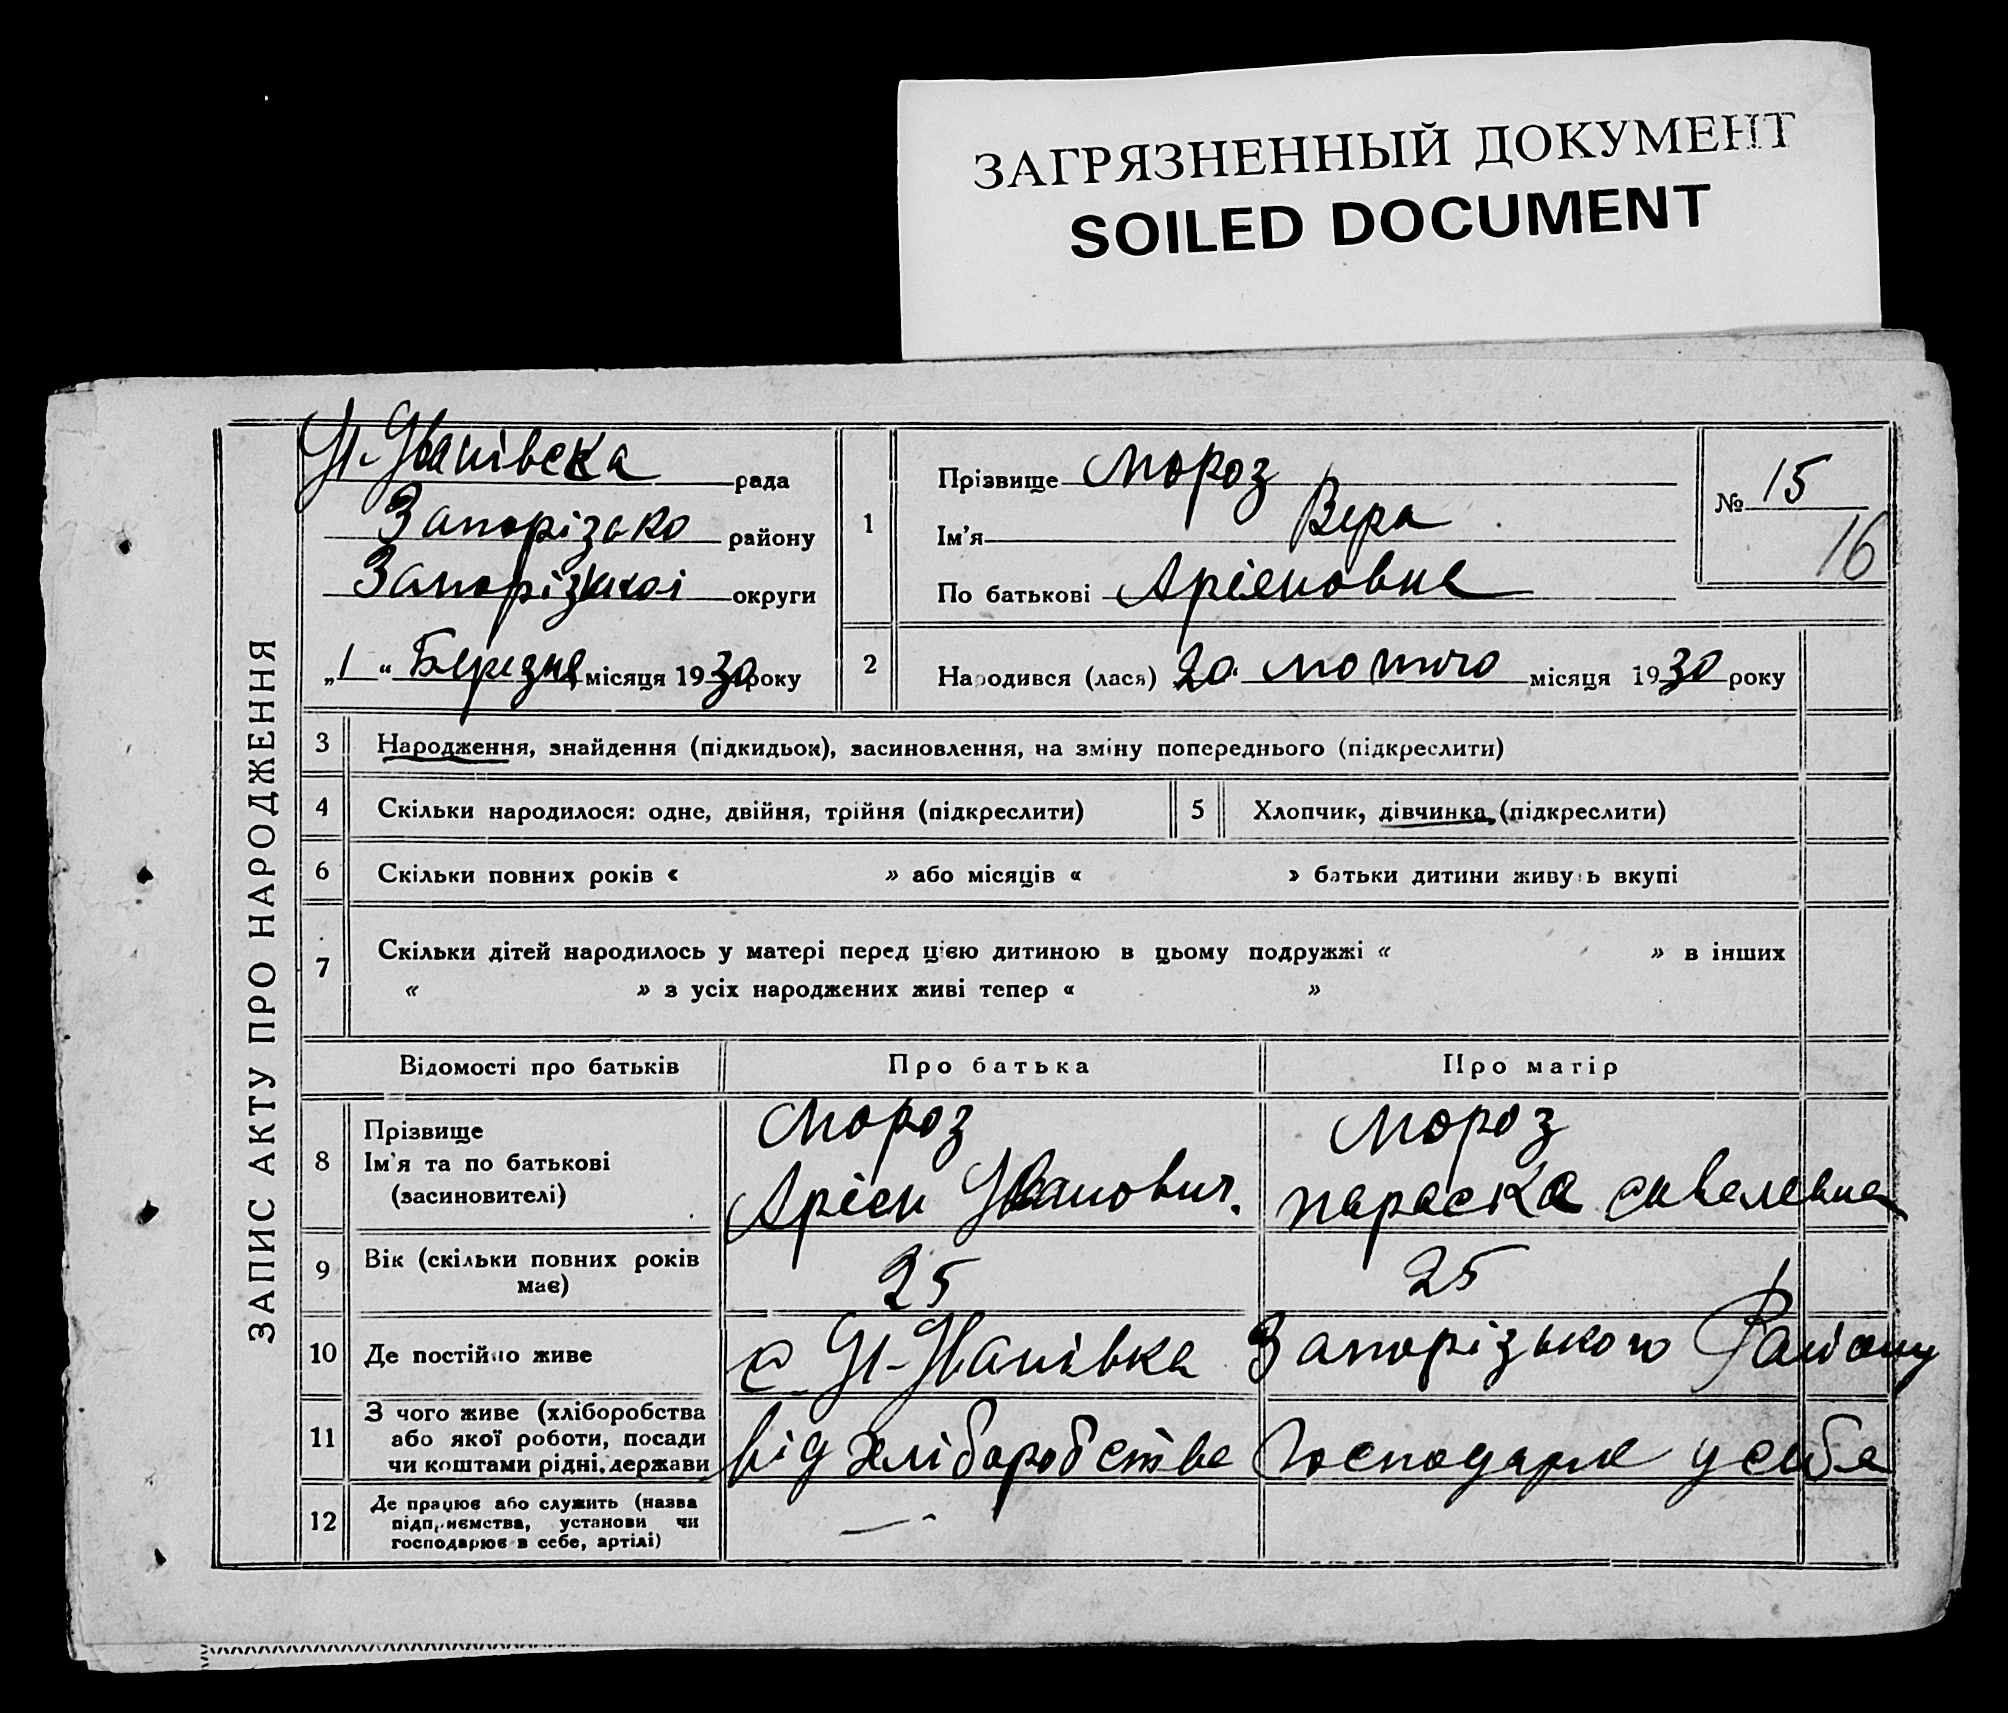 ЗАГРЯЗНЕННЫЙ ДОКУМЕНТ
SOILED DOCUMENT
ЗАПИС АКТУ ПРО НАРОДЖЕННЯ
Ул-Иванівска рада
Запорізько району
Запорізької округи
„1“ Березня місяця 1930 року
1
Прізвище Мороз
Ім'я Вера
По батькові Арієновна
№ 15
16
2
Народився (лася) 20 лютого місяця 1930 року
3 Народження, знайдення (підкидьок), засиновлення, на зміну попереднього (підкреслити)
4 Скільки народилося: одне, двійня, трійня (підкреслити) 5 Хлопчик, дівчинка, (підкреслити)
6 Скільки повних років « » або місяців « » батьки дитини живуть вкупі
7 Скільки дітей народилось у матері перед цією дитиною в цьому подружжі « » в інших
« » з усіх народжених живі тепер « »
Відомості про батьків Про батька Про матір
8 Прізвище
Ім'я та по батькові
(засиновителі)
Мороз
Арієн Иванович.
Мороз
параска савелевна
9 Вік (скільки повних років
має)
25 25
10 Де постійно живе с. Ул-Иванівка Запорізького Района
11 З чого живе (хліборобства
або якої роботи, посади
чи коштами рідні, держави
від хліборобства Господарює у себе
12 Де працює або служить (назва
підприємства, установи чи
господарює в себе, артілі)
—